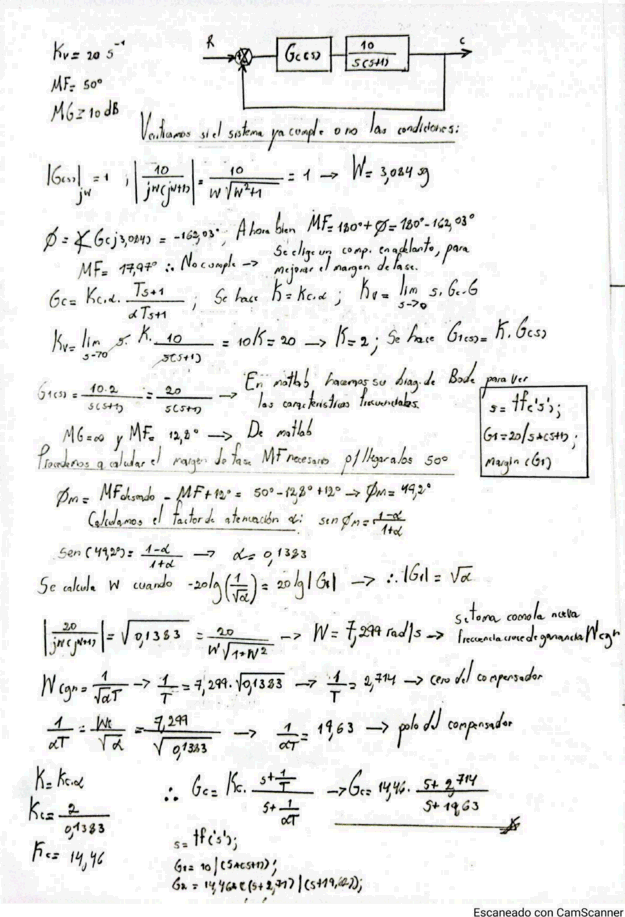 Kv = 20 s⁻¹
MF = 50°
MG ≥ 10 dB
R
Gc(s)
10
s(s+1)
C
Verificamos si el sistema ya cumple o no las condiciones:
|G(s)|jw = 1 , |10 / jw(jw+1)| = 10 / w√w²+1 = 1 → W = 3,084
Ø = ∡G(j3,084) = -162,03°, Ahora bien MF = 180° + Ø = 180° - 162,03°
MF = 17,97° ∴ No cumple → Se elige un comp. en adelanto, para
mejorar el margen de fase.
Gc = Kc.α. Ts+1 / αTs+1 ; Se hace K = Kc.α ; Kv = lim s→0 s.Gc.G
Kv = lim s→0 s. K. 10 / s(s+1) = 10K = 20 → K = 2 ; Se hace G1(s) = K.G(s)
G1(s) = 10.2 / s(s+1) = 20 / s(s+1) → En matlab hacemos su diag. de Bode para ver
las características frecuenciales.
s = tf('s');
G1 = 20/s*(s+1);
margin (G1)
MG = ∞ y MF = 12,8° → De matlab
Procedemos a calcular el margen de fase MF necesario p/llegar a los 50°
Øm = MFdeseado - MF + 12° = 50° - 12,8° + 12° → Øm = 49,2°
Calculamos el factor de atenuación α: sen Øm = 1-α / 1+α
Sen (49,2°) = 1-α / 1+α → α = 0,1383
Se calcula W cuando -20lg(1/√α) = 20lg|G1| → ∴ |G1| = √α
|20 / jw(jw+1)| = √0,1383 = 20 / W√1+W² → W = 7,299 rad/s → se toma como la nueva
frecuencia cruce de ganancia Wcgn
Wcgn = 1/√αT → 1/T = 7,299.√0,1383 → 1/T = 2,714 → cero del compensador
1/αT = Wc/√α = 7,299/√0,1383 → 1/αT = 19,63 → polo del compensador
K = Kc.α
Kc = 2 / 0,1383
Kc = 14,46
∴ Gc = Kc. s+1/T / s+1/αT → Gc = 14,46. s+2,714 / s+19,63
s = tf('s');
G1 = 10/(s*(s+1));
Escaneado con CamScanner